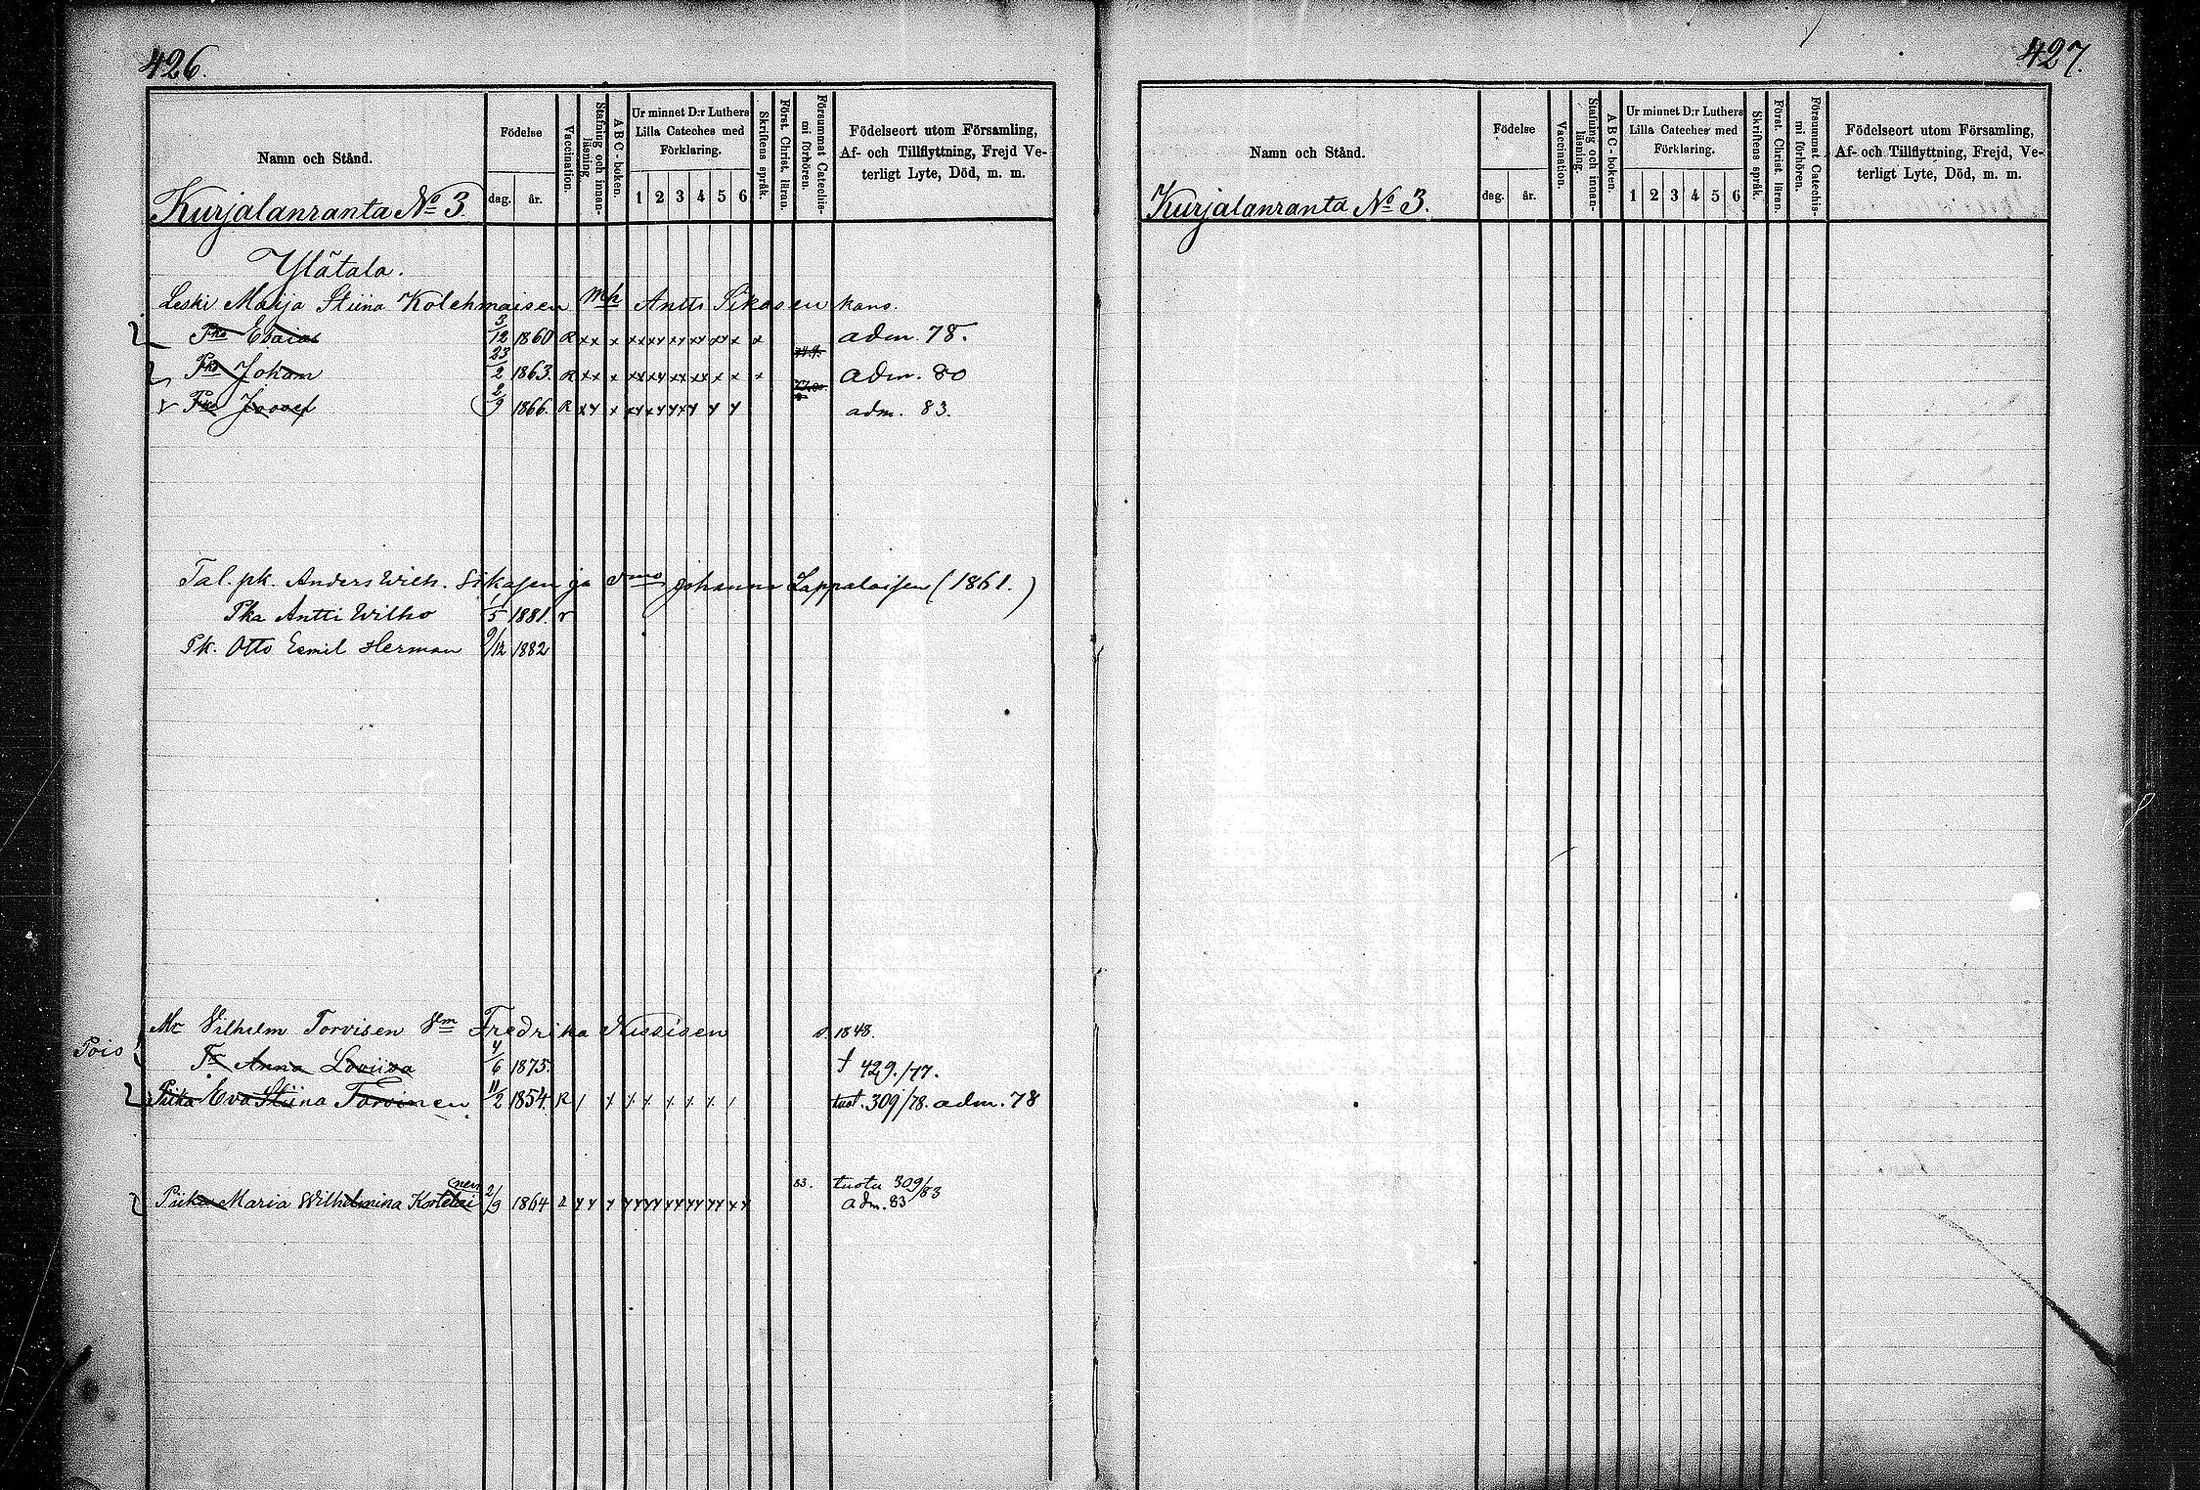 426.
Namn och Stånd.
Kurjalanranta No 3.
Födelse
dag. år.
Vaccination.
Stafning och innan-läsning.
A B C - boken.
Ur minnet D:r Luthers Lilla Cateches med Förklaring.
1 2 3 4 5 6
Skriftens språk.
Först. Christ. läran.
Försummat Catechis-mi förhören.
Födelseort utom Församling,
Af- och Tillflyttning, Frejd Ve-
terligt Lyte, Död, m. m.
Ylätalo.
Leski Maija Stiina Kolehmaisen mh Antti Sikasen kans.
Pka Esaias 3/12 1860 R xx x xx xx xx xx xx x x adm. 78.
Pka Joham 23/2 1863. R xx x xx xx xx xx x x x adm. 80
Pka Josef 2/9 1866. R xy x adm. 83.
Tal. pk. Anders Wilh. Sikasen ja vmo Johanna Lappalaisen (1861.)
Pka Antti Wilho 1/5 1881. r
Pk. Otto Esmil Herman 9/12 1882
Mr Vilhelm Torvisen Vm Fredrika Nussisen s. 1848.
Pois
Tr Anna Lovisa 4/6 1875. † 429./77.
Piika Eva Stiina Torvinen 11/2 1854. R / x x x x x x / tust. 309/78. adm. 78
Piika Maria Wilhelmina Kortelai nen 2/9 1864 R 83. tustu 309/83
adm. 83
427.
Namn och Stånd.
Kurjalanranta No 3.
Födelse
dag. år.
Vaccination.
Stafning och innan-läsning.
A B C - boken.
Ur minnet D:r Luthers Lilla Cateches med Förklaring.
1 2 3 4 5 6
Skriftens språk.
Först. Christ. läran.
Försummat Catechis-mi förhören.
Födelseort utom Församling,
Af- och Tillflyttning, Frejd, Ve-
terligt Lyte, Död, m. m.